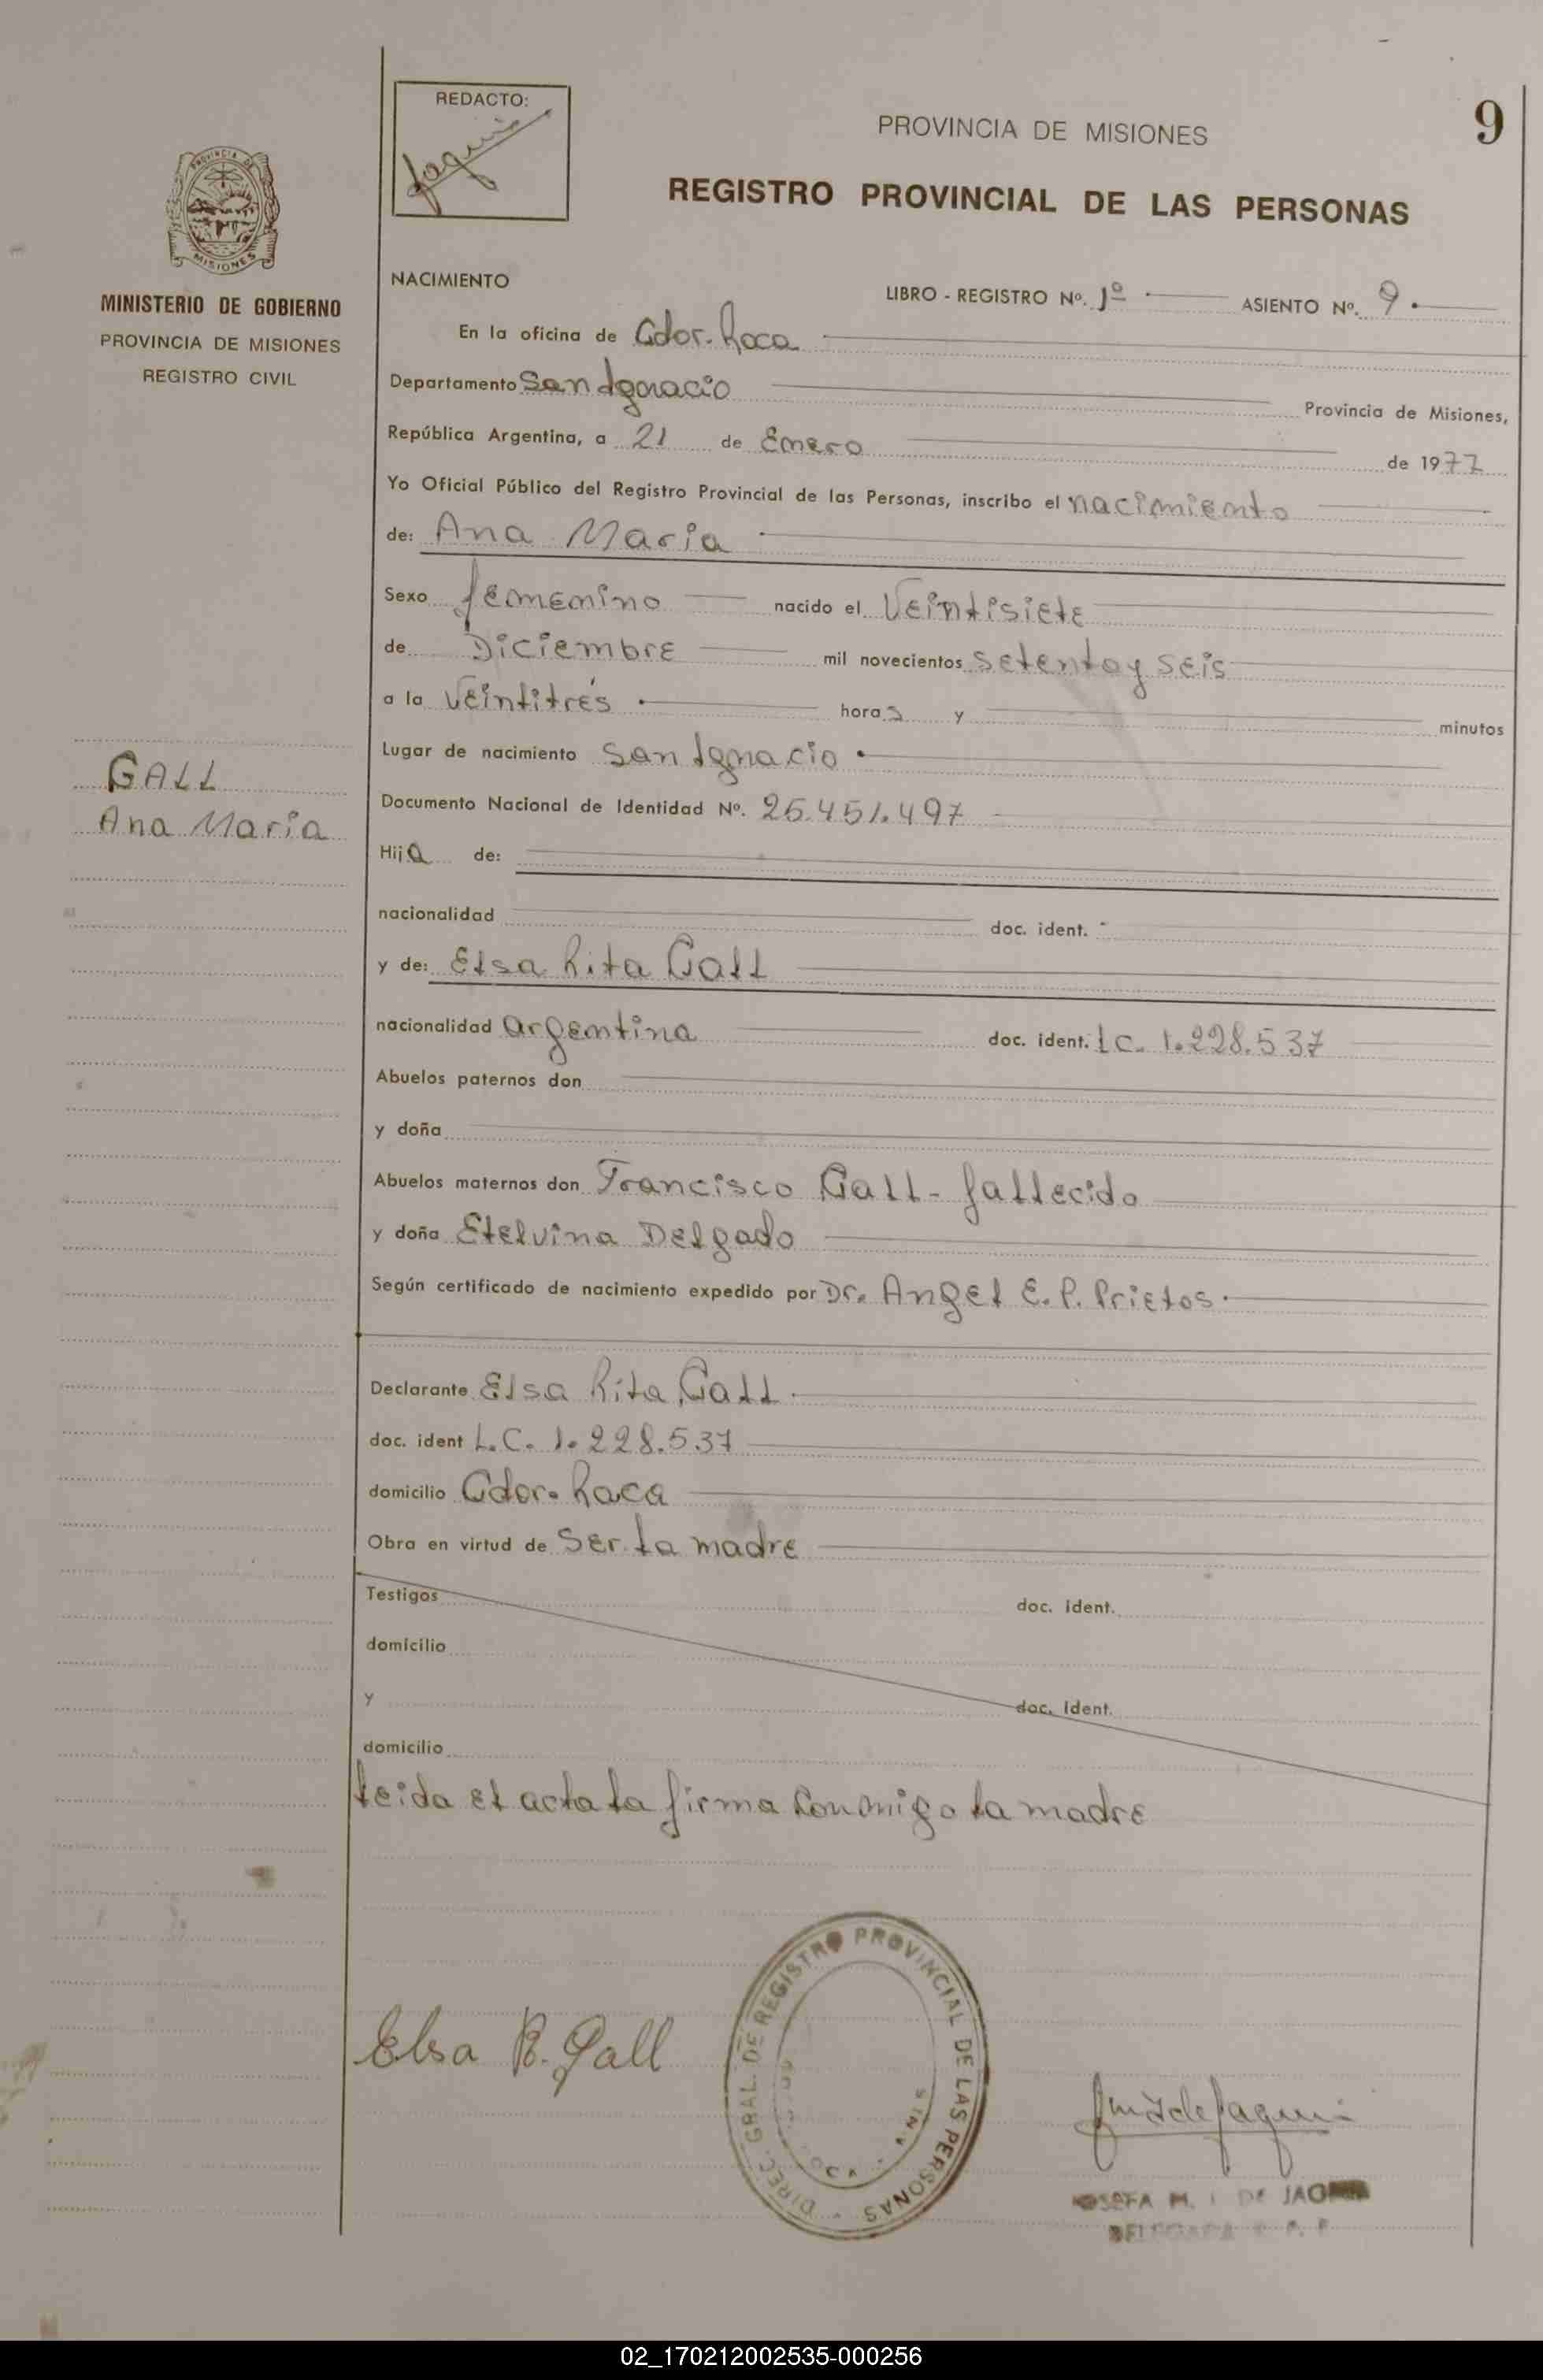 REDACTO:
Jaquis
PROVINCIA DE MISIONES
9
REGISTRO PROVINCIAL DE LAS PERSONAS
PROVINCIA DE
MISIONES
MINISTERIO DE GOBIERNO
PROVINCIA DE MISIONES
REGISTRO CIVIL
NACIMIENTO
LIBRO - REGISTRO Nº. 1º ASIENTO Nº. 9.
En la oficina de Gdor. Roca
Departamento San Ignacio Provincia de Misiones,
República Argentina, a 21 de Enero de 1977
Yo Oficial Público del Registro Provincial de las Personas, inscribo el nacimiento
de: Ana Maria
Sexo femenino nacido el Veintisiete
de Diciembre mil novecientos setenta y seis
a la Veintitrés horas y minutos
Lugar de nacimiento San Ignacio
GALL
Ana Maria
Documento Nacional de Identidad Nº. 25.451.497
Hija de:
nacionalidad doc. ident.
y de: Elsa Rita Gall
nacionalidad argentina doc. ident. L C. 1.228.537
Abuelos paternos don
y doña
Abuelos maternos don Francisco Gall - fallecido
y doña Etelvina Delgado
Según certificado de nacimiento expedido por Dr. Angel E. P. Prietos.
Declarante Elsa Rita Gall.
doc. ident L. C. 1.228.537
domicilio Gdor. Roca
Obra en virtud de ser la madre
Testigos doc. ident.
domicilio
y doc. ident.
domicilio
leida el acta la firma conmigo la madre
Elsa R. Gall
DIREC. GRAL. DE REGISTRO PROVINCIAL DE LAS PERSONAS
JOSEFA M. I DE
DELEGADA
02_170212002535-000256